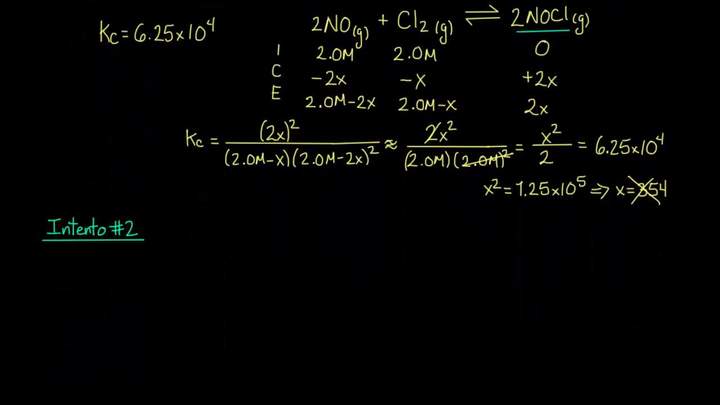 Kc = 6.25x10⁴
2NO(g) + Cl2(g) ⇌ 2NOCl(g)
I 2.0M 2.0M 0
C -2x -x +2x
E 2.0M-2x 2.0M-x 2x
Kc = (2x)² / (2.0M-x)(2.0M-2x)² ≈ 2x² / (2.0M)(2.0M)² = x² / 2 = 6.25x10⁴
x² = 1.25x10⁵ ⇒ x = 354
Intento #2